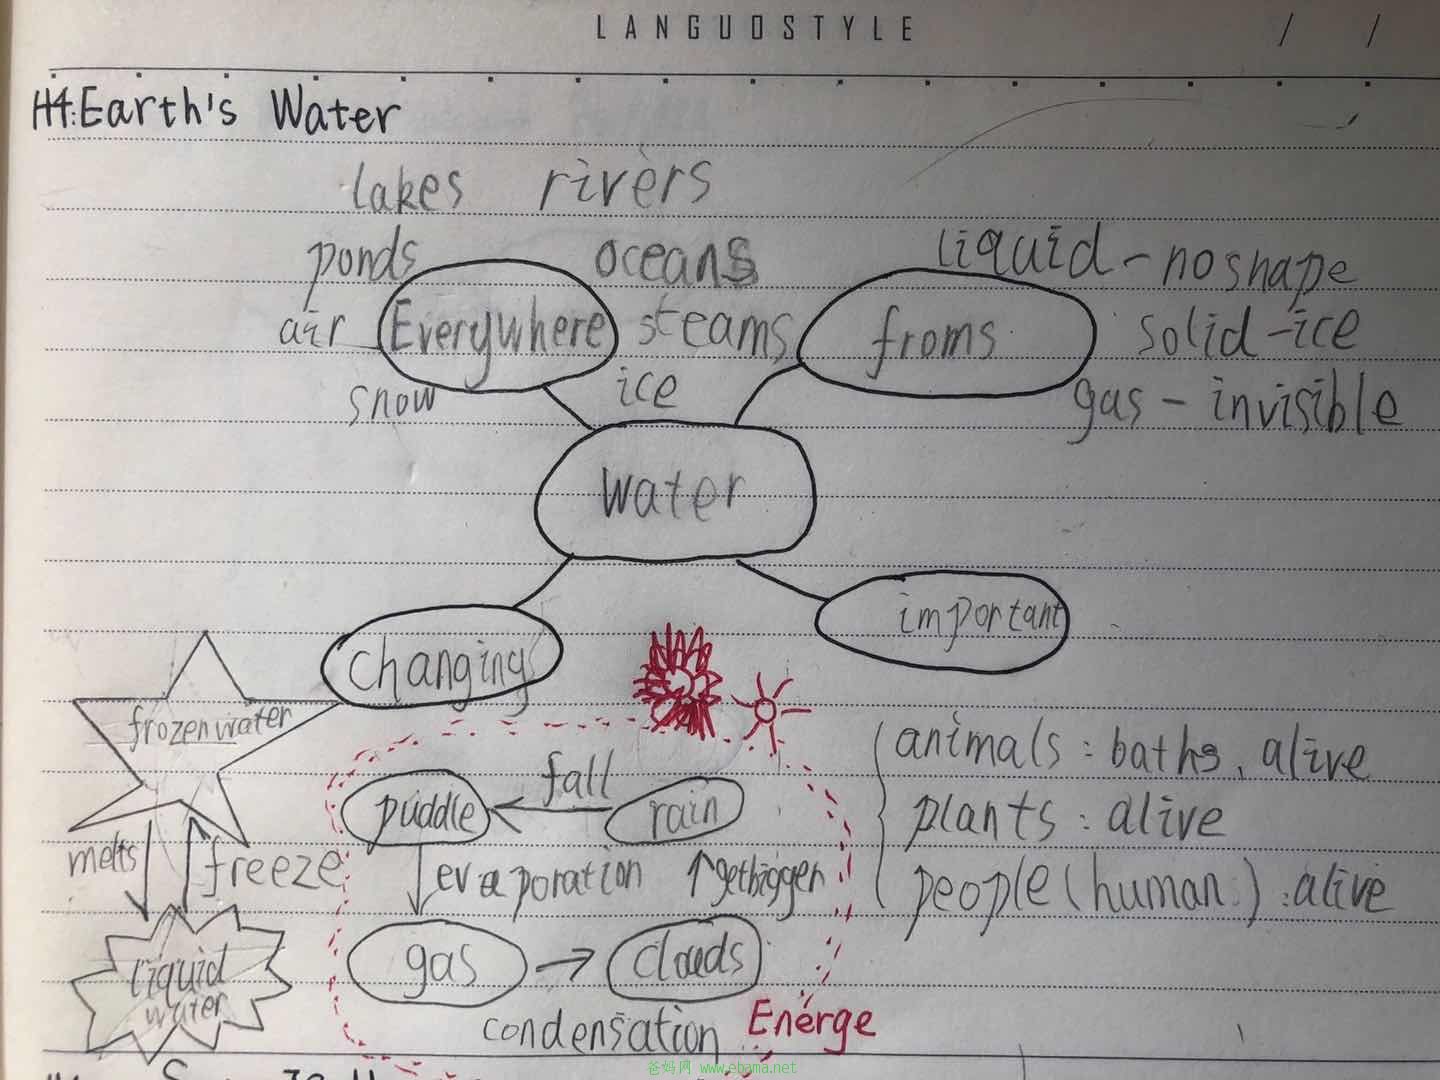 LANGUOSTYLE / /
H4:Earth's Water
lakes rivers
ponds oceans
liquid - no shape
air Everywhere steams
froms
solid - ice
snow ice
gas - invisible
water
important
changing
frozen water
melts
freeze
liquid
water
puddle
fall
rain
evaporation
get bigger
gas
clouds
condensation
Energe
animals : baths, alive
plants : alive
people (human) : alive
爸妈网 www.ebama.net